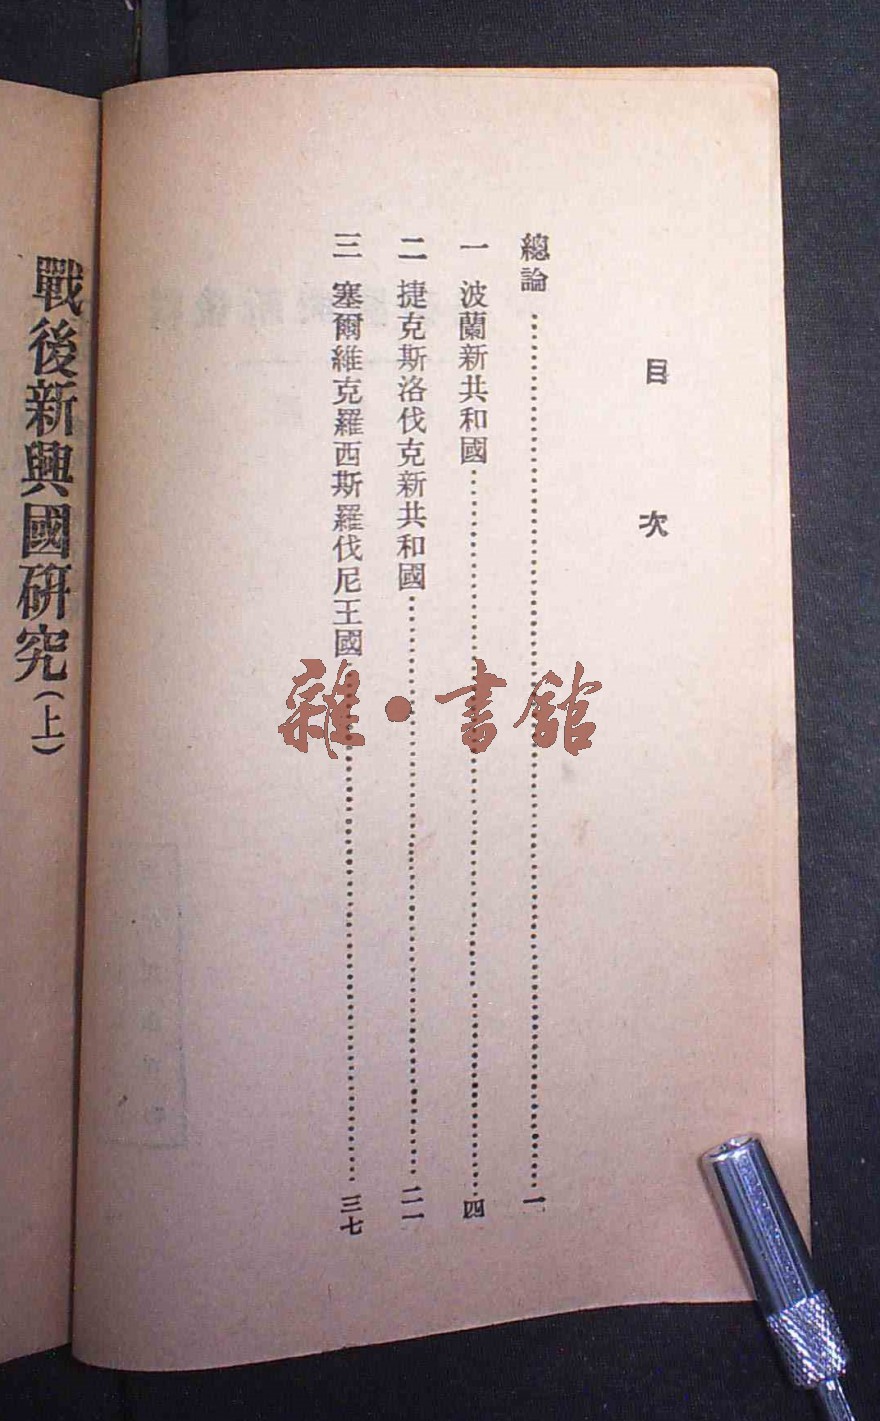 目次
總論 一
一 波蘭新共和國 四
二 捷克斯洛伐克新共和國 二一
三 塞爾維克羅西斯羅伐尼王國 三七
戰後新興國研究(上)
雜·書館